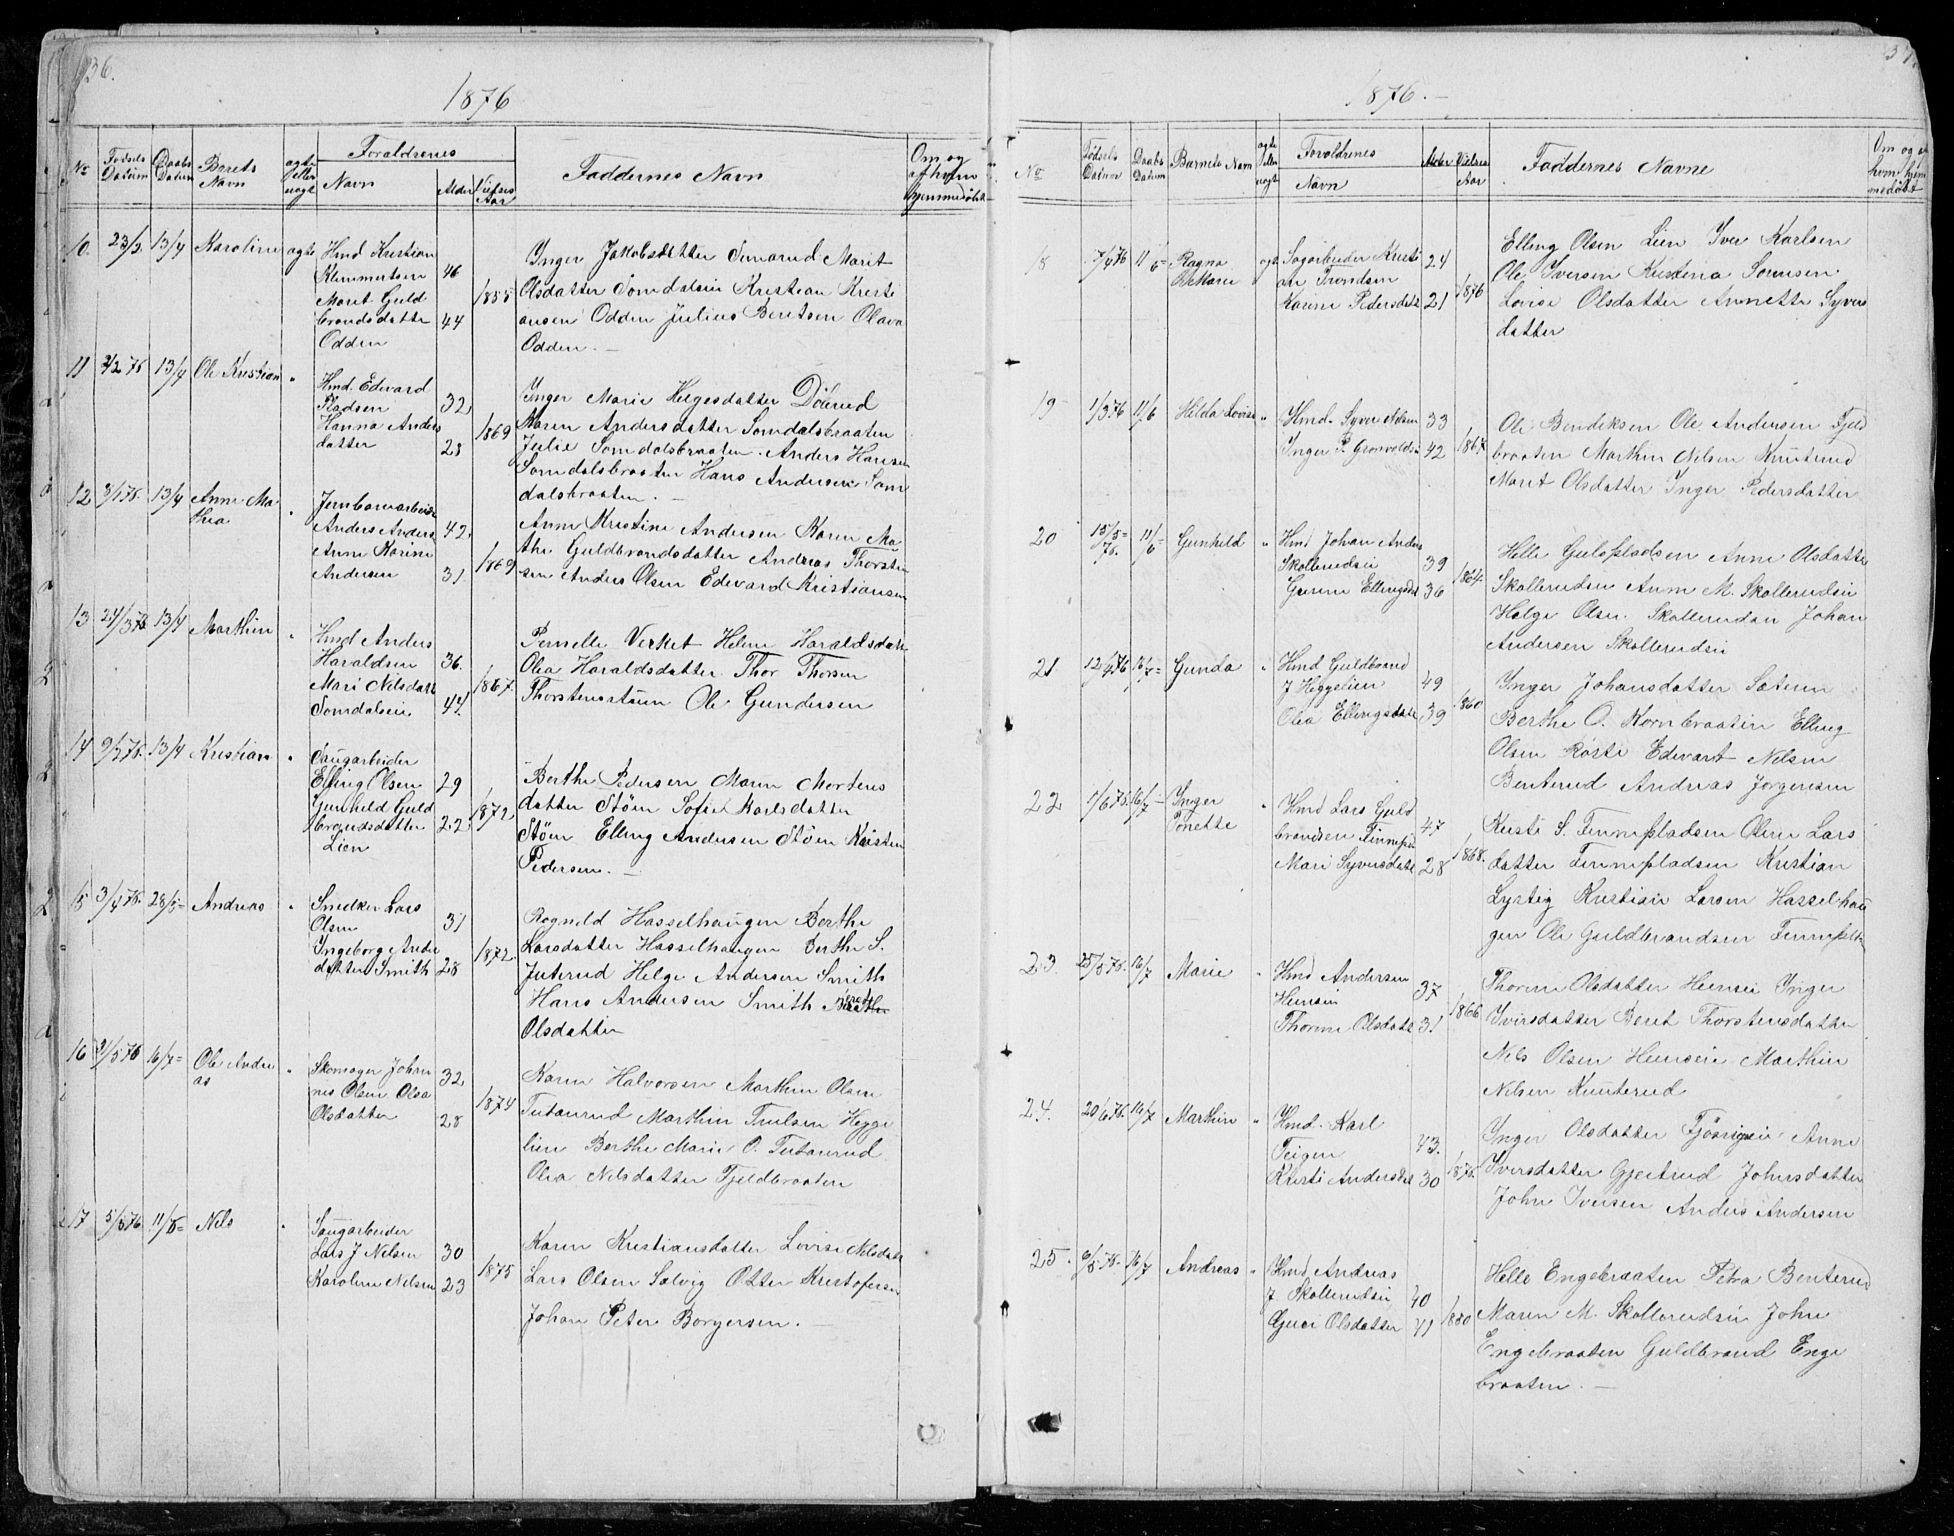 36.
1876
No
Fodsels Datum
Daabs Datum
Barets Navn
ægte eller uægt
Foraldrenes
Navn
Alder
Vielses Aar
Faddernes Navn
Om og af hvem hjemmedøbt
10. 23/2 13/4 Karoline ægte
Hmd Kristian
Klemmetsen 46
Marit Guld
brandsdatter 44
Odden
1855
Inger Jakobsdatter Marit
Olsdatter Somdalseie Kristian Kristi
ansen Odden Julius Berntsen Olava
Odden. —
11 13/4 Ole Kristian "
Hmd. Edvard
Pladsen 32
Hanna Anders
datter 28
1869
Inger Marie Helgesdatter Dölerud
Maren Andersdatter Somdalsbraaten
Julie Somdalsbraaten. Anders Hansen
Somdalsbraaten Hans Andersen Som
dalsbraaten. —
12 13/4 Anne Ma
thea "
Jernbanearbeider
Anders Anders 42
Anne Karine
Andersen 31
1869
Anne Kristine Andersen Karen Ma
the Guldbrandsdatter Andreas Thorste
sen Anders Olsen Edvard Kristiansen
13 24/3 76 13/4 Marthin "
Hmd Anders
Haraldsen 36.
Mari Nilsdatt
Somdalseie 44.
1867.
Pernelle Verket Helene Haraldsdatt
Olea Haraldsdatter Thor Thorsen
Ole Gundersen
14 13/4 Kristian "
Saugarbeider
Elling Olsen 29
Gunhild Guld
brandsdatter 22
Lien
1872
Berthe Pedersen Maren Mortens
datter Støen Sofie Karlsdatter
Støen Elling Andersen Støen Kristen
Pedersen. —
15 3/4 76. 28/5= Andreas "
Snedker Lars
Olsen 31
Ingeborg Ande
datter Smith 28
1872.
Ragnild Hasselhaugen Berthe
Larsdatter Hasselhaugen Berthe S.
Juterud Helge Andersen Smith
Hans Andersen Smith
Olsdatter
16 16/7= Ole Andre
as "
Skomager Johan
nes Olsen Olea 32
Olsdatter 28
1874
Karen Halvorsen Marthin Olsen
Tutanrud Marthin Trulsen Hegge
lien Berthe Marie O. Tutanrud
Olea Nilsdatter Fjeldbraaten
17 5/5 76 Nils "
Saugarbeider
Lars J Nelsen 30
Karoline Nelsen 23
1875
Karen Kristiansdatter Lovise Nilsdatt
Lars Olsen Solvig Otter Kristofersen
Johan Peter Borgersen. —
37.
1876. —
No
Fødsels Datum
Daabs Datum
Barnets Navn
ægte eller uægt
Foraldrenes
Navn
Alder
Vielses Aar
Faddernes Navne
Om og af hvem hjem medøbt
18 7/4 76 11/6= Ragna
Marie ægt
Sagarbeider Kristi 24
an Trondsen
Karine Pedersdatt 21
1876
Elling Olsen Lien Iver Karlsen
Ole Iversen Kristina Sorensen
Lovise Olsdatter Annette Syver
datter
19 1/3 76 11/6 Hilda Lovise "
Hmd. Syver Olsen 33
Inger P. Gronvoldsei 42
1867
Ole Bendiksen Ole Andersen Fjeld
braaten Marthin Nilsen Knuterud
Marit Olsdatter Inger Pedersdatter
20 15/5= 76. 11/6= Gunhild "
Hmd Johan Anders
Skollerudsei 39
Ellingsdat 36
1864.
Helle Anne Olsdatter
Skollerudsei Anne M. Skollerudsei
Helge Olsen Skollerudsei Johan
Andersen Skollerudsei
21 12/4 76 16/7= Gunda "
Hmd Guldbrand
J Heggelien 49
Olea Ellingsdatt 39
1860
Inger Johansdatter Sæteren
Berthe O. Kornbraaten Elling
Olsen Røste Edvart Nilsen
Benterud Andreas Jorgensen
22 1/6 76. 16/7— Inger
Tonette "
Hmd Lars Guld
brandsen 47
Mari Syversdatt 28
1868.
Kirsti S. Finnepladsen Olene Lars
datter Finnepladsen Kristian
Lystig Kristian Larsen Hasselhau
gen Ole Guldbrandsen
23. 25/5 76. 16/7 Marie "
Hmd Andersen
Hemsei 37
Thorine Olsdatt 31
1866
Thorine Olsdatter Hemsei Inger
Iversdatter Beret Thorstensdatter
Nils Olsen Hemseie Marthin
Nilsen Knuterud
24. 20/6 76. 16/7 Marthin "
Hmd. Karl
Teigen 43.
Kirsti Andersdat 30
1876.
Inger Olsdatter Anne
Iversdatter Gjertrud Johnsdatter
John Iversen Anders Andersen
25. 6/5 76. 16/7 Andreas "
Hmd Andreas
J. Skollerudsei 40
Guri Olsdatter 41
Helle Engebraaten Petra Benterud
Maren M. Skollerudsei John
Engebraaten Guldbrand Enge
braaten. —